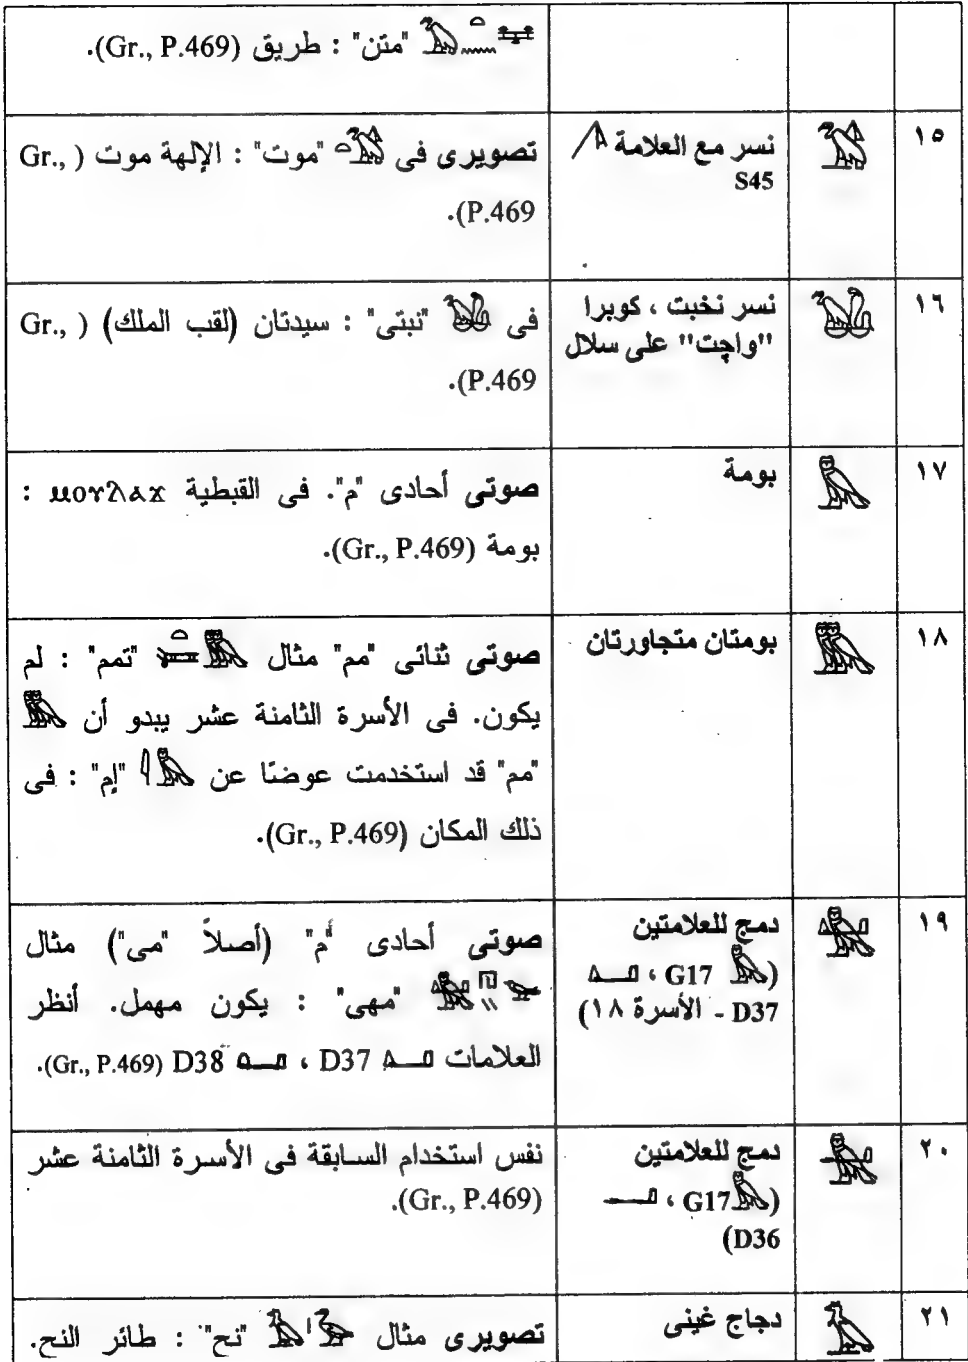 "متن" : طريق (Gr., P.469).
١٥
نسر مع العلامة
S45
تصويرى فى "موت" : الإلهة موت (Gr.,
P.469).
١٦
نسر نخبت ، كوبرا
"واچت" على سلال
فى "نبتى" : سيدتان (لقب الملك) (Gr.,
P.469).
١٧
بومة
صوتي أحادى "م". فى القبطية ⲙⲟⲩⲗⲁϫ :
بومة (Gr., P.469).
١٨
بومتان متجاورتان
صوتي ثنائى "مم" مثال "تمم" : لم
يكون. فى الأسرة الثامنة عشر يبدو أن
"مم" قد استخدمت عوضًا عن "إم" : فى
ذلك المكان (Gr., P.469).
١٩
دمج للعلامتين
(G17 ،
D37 - الأسرة ١٨)
صوتي أحادى "م" (أصلاً "مى") مثال
"مهى" : يكون مهمل. أنظر
العلامات D37 ، D38 (Gr., P.469).
٢٠
دمج للعلامتين
(G17 ،
D36)
نفس استخدام السابقة فى الأسرة الثامنة عشر
(Gr., P.469).
٢١
دجاج غينى
تصويرى مثال "نح" : طائر النح.